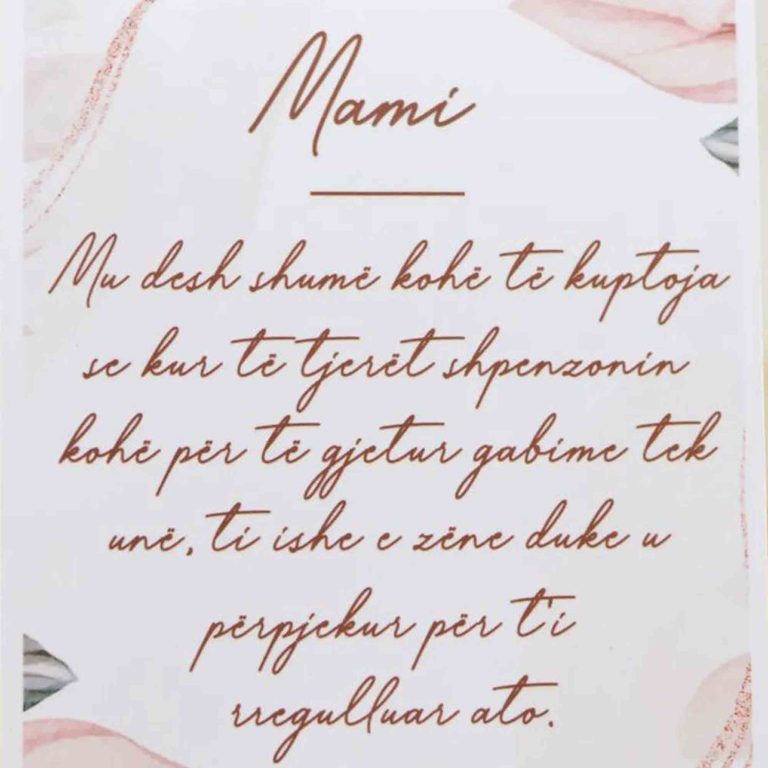 Mami
Mu desh shumë kohë të kuptoja
se kur të tjerët shpenzonin
kohë për të gjetur gabime tek
unë, ti ishe e zëne duke u
përpjekur për t'i
rregulluar ato.